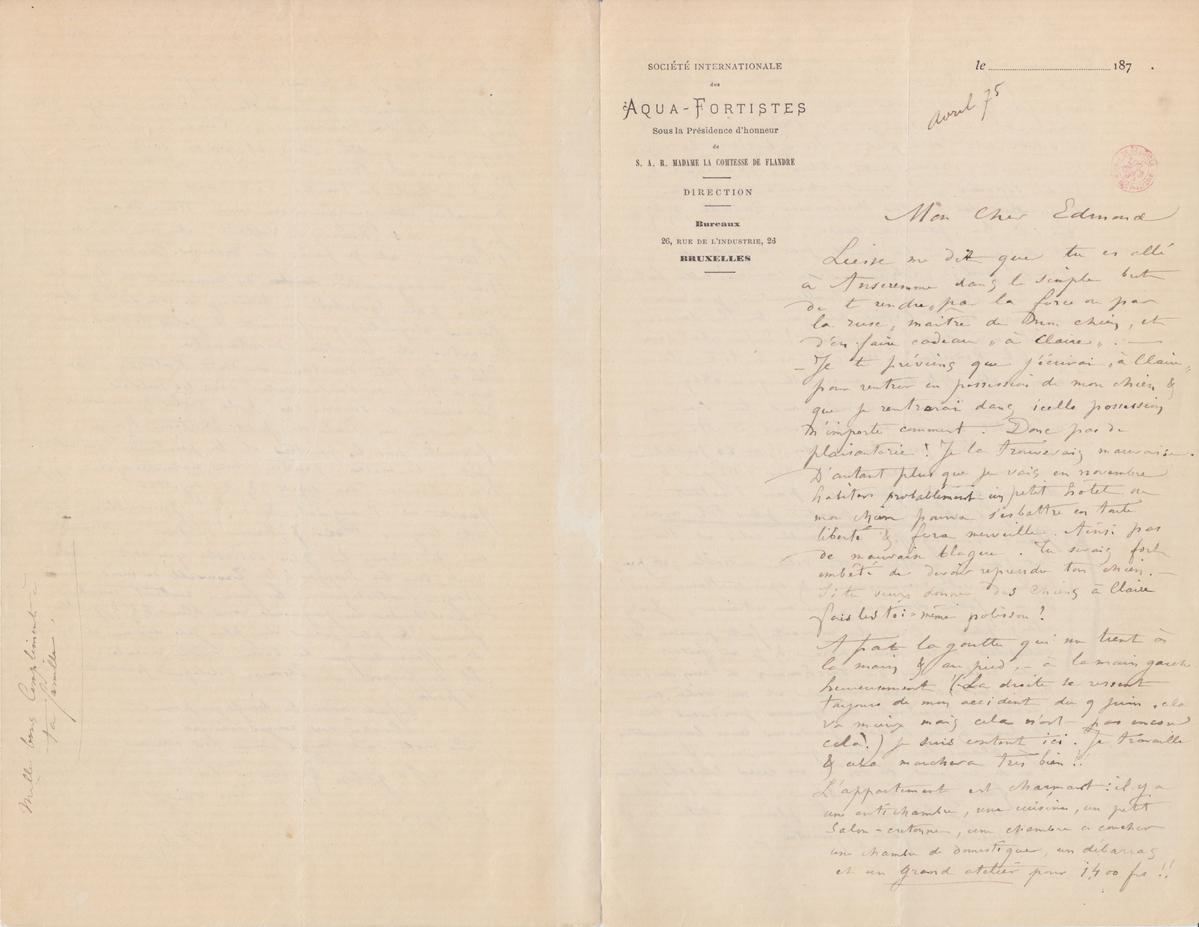 Mille bons Compliments à
ta famille.
SOCIÉTÉ INTERNATIONALE
des
AQUA-FORTISTES
Sous la Présidence d'honneur
de
S. A. R. MADAME LA COMTESSE DE FLANDRE
DIRECTION
Bureaux
26, RUE DE L'INDUSTRIE, 26
BRUXELLES
le 187 .
avril 75
Mon Cher Edmond
me dit que tu es allé
à Anseremme dans le simple but
de te rendre, par la force ou par
la ruse, maître de mon chien, et
d'en faire cadeau « à Claire ». —
– Je te préviens que j'écrirai « à Claire »
pour rentrer en possession de mon chien &
que je rentrerai dans icelle possession
n'importe comment. Donc pas de
plaisanterie ! Je la trouverais mauvaise.
D'autant plus que je vais en novembre
habiter probablement un petit hôtel ou
mon chien pourra s'esbattre en toute
liberté & fera merveille. Ainsi pas
de mauvaise blague. Tu serais fort
embêté de devoir reprendre ton chien. –
Si tu veux donner des chiens à Claire
fais les toi-même polisson !
A part la goutte qui me tient à
la main & au pied, – à la main gauche
heureusement (La droite se ressent
toujours de mon accident du 9 juin, cela
va mieux mais cela n'est pas encore
cela !) je suis content ici. Je travaille
& cela marchera très bien !!
L'appartement est charmant : il y a
une antichambre, une cuisine, un petit
Salon-cretonne, une chambre à coucher
une chambre de domestique, un débarras
et un grand atelier pour 1400 frs !!